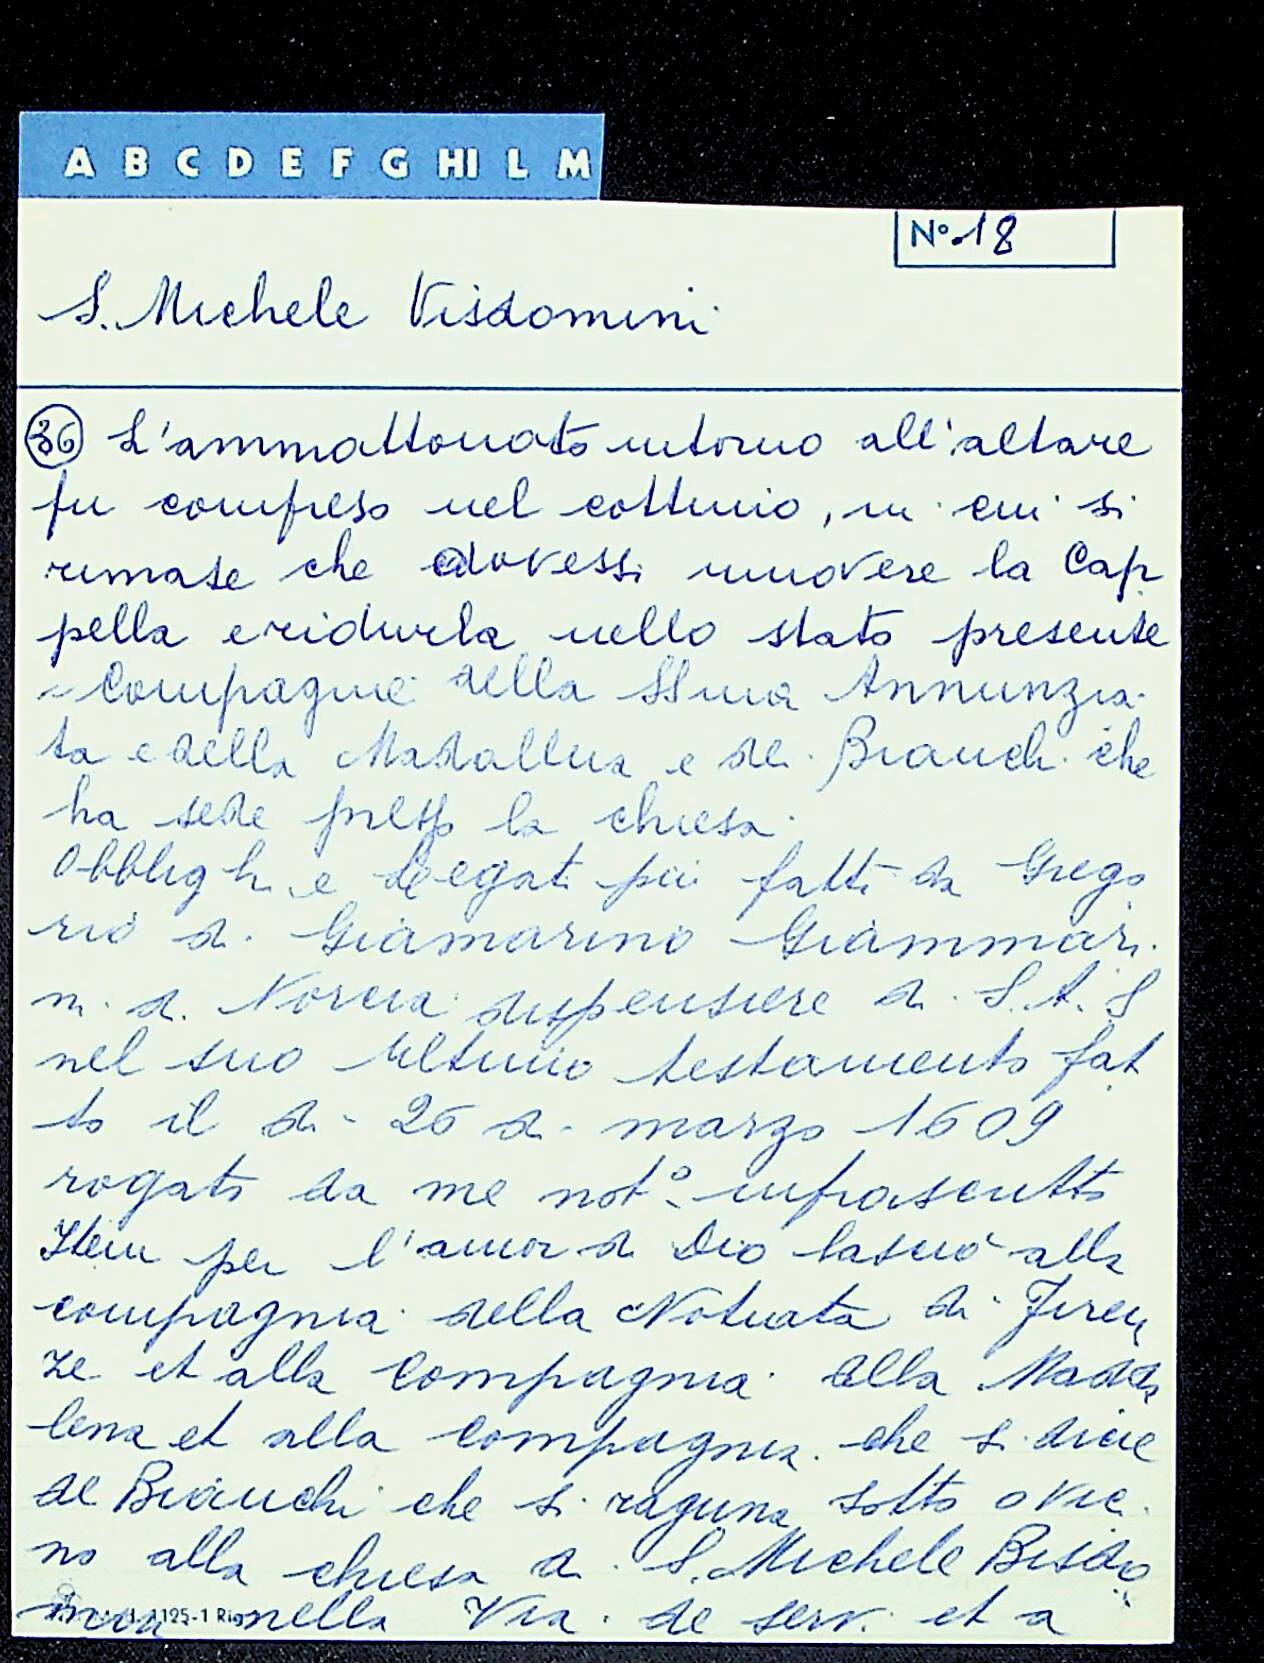 A B C D E F G HI L M
N° 18
S. Michele Visdomini
36 L'ammattonato intorno all'altare
fu compreso nel cottimio, in cui si
rimase che dovessi muovere la Cap
pella e ridurla nello stato presente
- Compagnie della SSma Annunzia
ta e della Madallena e dei Bianchi che
ha sede presso la chiesa.
Obblighi e legati pii fatti da Grego
rio di Giamarino Giammari
ni di Norcia dispensiere di S. A. S
nel suo ultimo testamento fat
to il di 26 di marzo 1609
rogato da me not° infrascritto
Item per l'amor di Dio lasciò alla
compagnia della Notiata di Firen
ze et alla Compagnia alla Madda
lena et alla compagnia che si dice
de Bianchi che si raguna sotto o vici
no alla chiesa di S. Michele Bisdo
mini nella Via de servi et a
1125-1